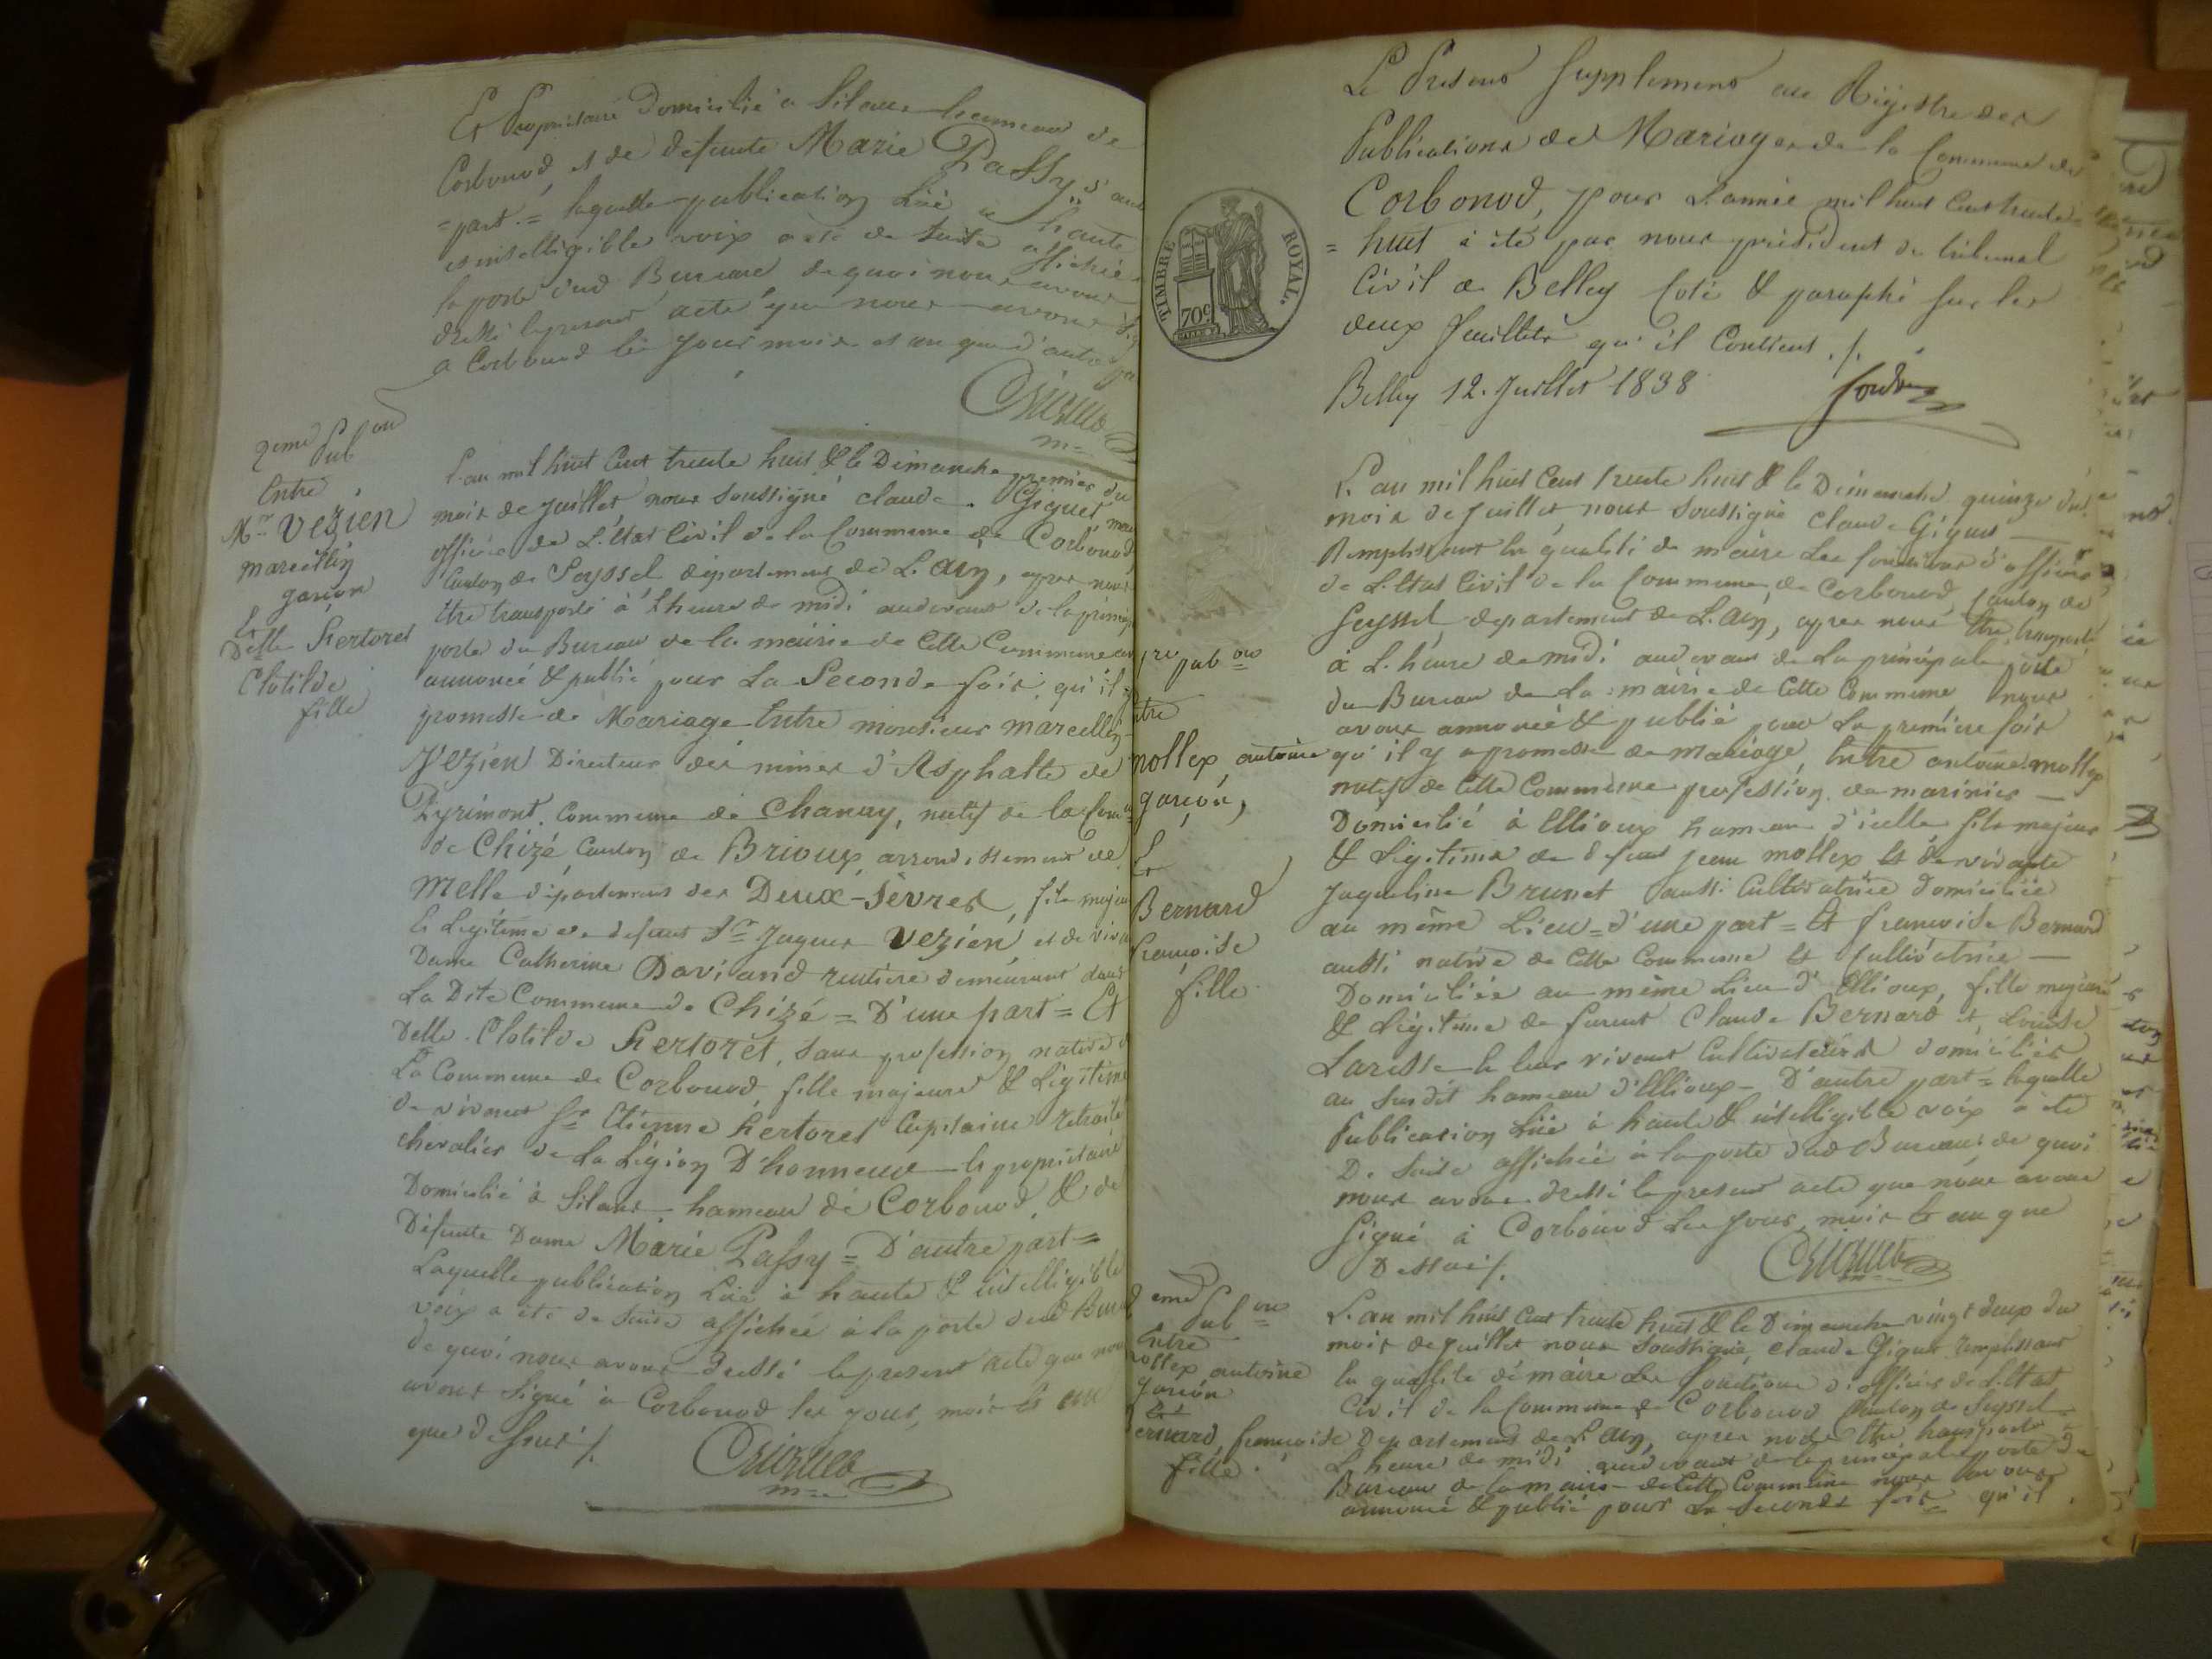 Et Propriétaire Domicilié a Silans hameau de
Corbonod, et de defunte Marie Passy d'autre
=part.= laquelle publication lüe a haute
et intelligible voix a été de suite affichée
la porte dud Bureau de quoi nous avons
dressé le présent acte que nous avons
a Corbonod les jour mois et an que d'autre
2eme Pub on
Entre
Mr Vezien
marcellin
garçon
Et
Delle hertoret
Clotilde
fille
L'an mil huit Cent trente huit & le Dimanche premier du
mois de juillet, nous soussigné claude Giguet, maire
officier de L'Etat Civil de la Commune de Corbonod
Canton de Seyssel département de L'ain, apres nous
être transporté à l'heure de midi audevant de la principale
porte du Bureau de la mairie de Cette Commune
annoncé & publié pour La Seconde fois, qu'il
promesse de Mariage Entre monsieur marcellin
Vezien Directeur des mines d'Asphalte de
Pyrimont, Commune de Chanay, natif de la Com
de Chizé Canton de Brioux, arrondissement de
Melle département des Deux-Sèvres, fils majeur
& Légitime de defunt Sr Jaques Vezien, et de viv
Dame Catherine Daviaud rentiere demeurant dans
La Dite Commune de Chizé = D'une part = Et
Delle Clotilde hertoret, sans profession native d
La Commune de Corbonod, fille majeure & Légitime
de vivant Sr Etienne hertoret Capitaine retraité
chevalier de La Légion D'honneur & propriétaire
Domicilié à Silans hameau de Corbonod, & de
Défunte Dame Marie Passy = D'autre part =
Laquelle publication Lüe à haute & intelligible
voix a été de suite affichée à la porte dud Bure
de quoi nous avons dressé le present acte que nou
avons signé à Corbonod les jour, mois & an
que dessus /.
Le Present Supplement au Régistre des
Publications de Mariages de la Commune de
Corbonod, pour L'année mil huit Cent trente
= huit a été par nous président du tribunal
Civil de Belley Coté & paraphé sur les
deux feuillets qu'il Contient ./.
Belley 12. Juillet 1838
TIMBRE ROYAL.
70c
1re pub on
ntre
mollex antoine
garçon,
Et
Bernard
francoise
fille
L'an mil huit Cent trente huit & le Dimanche quinze du
mois de juillet, nous soussigné Claude Giguet
Remplissant la qualité de maire les fonctions d'officier
de L'Etat Civil de la Commune de Corbonod, Canton de
Seyssel département de L'ain, apres nous être transporté
à L'heure de midi audevant de La principale porte
du Bureau de La mairie de Cette Commune, nous
avons annoncé & publié pour La première fois
qu'il y a promesse de mariage, Entre antoine mollex
natif de Cette Commune profession de marinier
Domicilié à Ellioux hameau d'icelle fils majeur
& Légitime de defunt jean mollex Et de vivante
Jaqueline Brunet aussi Cultivatrice domiciliée
au même Lieu = d'une part = Et francoise Bernard
aussi native de Cette Commune Et Cultivatrice
Domiciliée au même Lieu d'Ellioux, fille majeure
& Légitime de Claude Bernard et, Louise
vivant Cultivateurs domiciliés
au susdit hameau d'Ellioux = D'autre part = laquelle
Publication Lüe à haute & intelligible voix a été
De suite affichée à la porte dud Bureau, de quoi
nous avons dressé le present acte que nous avons
signé à Corbonod Les jour, mois & an que
Dessus /.
eme Pub on
Entre
mollex antoine
garçon
Et
Bernard, francoise
fille.
L'an mil huit Cent trente huit & le Dimanche vingt deux du
mois de juillet nous soussigné, Claude Giguet remplissant
la qualité de maire Les fonctions d'officier de L'Etat
Civil de la Commune de Corbonod Canton de Seyssel
Departement de L'ain, apres nous être transporté
L'heure de midi audevant de la principale porte du
Bureau de la mairie de Cette Commune nous avons
annoncé & publié pour La Seconde fois qu'il